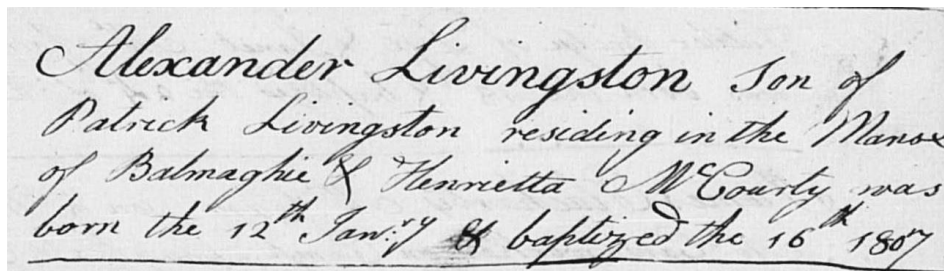 Alexander Livingston Son of
Patrick Livingston residing in the Manse
of Balmaghie & Henrietta McCourty was
born the 12th Janry & baptized the 16th 1807